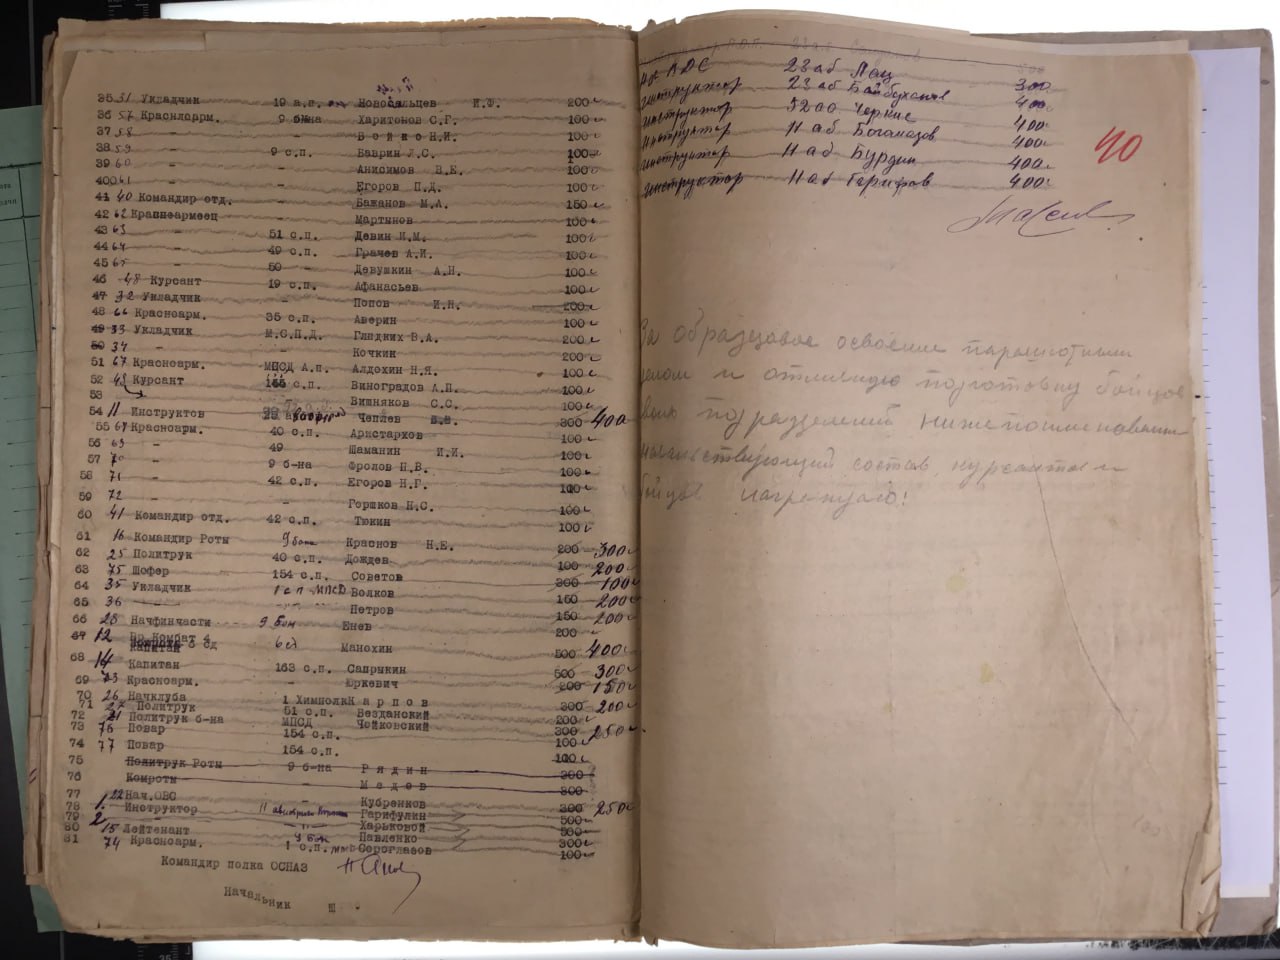 35 51 Укладчик 19 а.п. Новосельцев И.Ф. 200
36 57 Краснлоарм. 9 б-на Харитонов С.Г. 100
37 58 - - Бойко Н.И. 100
38 59 - 9 с.п. Баврин Л.С. 100
39 60 - - Анисимов В.Е. 100
400 61 - - Егоров П.Д. 100
41 40 Командир отд. - Бажанов М.А. 150
42 62 Красноармеец - Мартынов 100
43 63 - 51 с.п. Девин И.М. 100
44 64 - 49 с.п. Грачев А.И. 100
45 65 - 50 - Девушкин А.Н. 100
46 48 Курсант 19 с.п. Афанасьев 100
47 32 Укладчик - Попов И.Н. 200
48 66 Красноарм. 35 с.п. Аверин 100
49 33 Укладчик М.С.П.Д. Гладких В.А. 200
50 34 - Кочкин 200
51 67 Красноарм. МПСД А.п. Алдохин Н.Я. 100
52 49 Курсант с.п. Виноградов А.П. 100
53 - Вишняков С.С. 100
54 11 Инструктов Чепляев 300 400
55 67 Красноарм. 40 с.п. Аристархов 100
56 69 - 49 Шаманин И.И. 100
57 70 - 9 б-на Фролов П.В. 100
58 71 - 42 с.п. Егоров Н.Г. 100
59 72 - - Горшков Н.С. 100
60 41 Командир отд. 42 с.п. Тюкин 100
61 16 Командир Роты 9 бат Краснов Н.Е. 200 300
62 25 Политрук 40 с.п. Дождев 100 200
63 75 Шофер 154 с.п. Советов 300 100
64 35 Укладчик 1 с п МПСД Волков 150 200
65 36 - - Петров 150 200
66 28 Начфинчасти 9 бат Енев 200
67 12 Вр. Комбат 4 6 сд Манохин 500 400
Капитан
68 14 Капитан 163 с.п. Сапрыкин 500 300
69 73 Красноарм. - Юркевич 200 150
70 26 Начклуба 1 Химполк Карпов 300 200
71 27 Политрук 51 с.п. Везданский 200
72 21 Политрук б-на МПСД Чойковский 300 250
73 76 Повар 154 с.п. 100
74 77 Повар 154 с.п. 100
75 Политрук Роты 9 б-на Рядин 300
76 Комроты - Медов 300
77 22 Нач.ОВС - Кубренков 300 250
78 1. Инструктор Гарифулин 500
79 2 - Харьковой 500
80 15 Лейтенант 9 бат Павленко 300
81 74 Красноарм. 1 с.п. Сероглазов 100
Командир полка ОСНАЗ
Начальник Ш
АДС 23 аб Лац 300
инструктор 23 аб 400
инструктор Черкис 400
инструктор 11 аб Богомазов 400
инструктор 11 аб Бурдин 400
инструктор 11 аб Гарифов 400
40
За образцовое освоение парашютным
делом и отличную подготовку бойцов
подразделений нижепоименованный
начальствующий состав, курсантов и
бойцов награждаю!